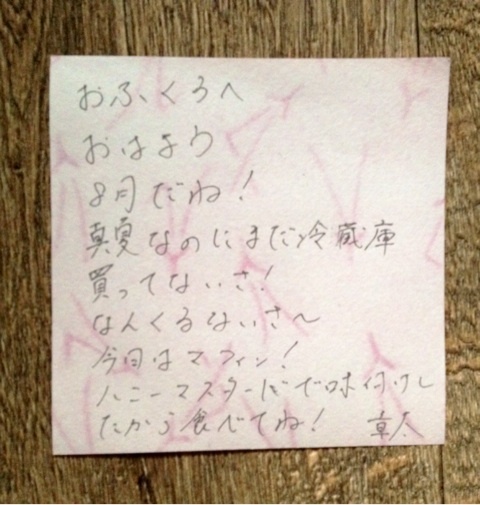 おふくろへ
おはよう
8月だね!
真夏なのにまだ冷蔵庫
買ってないさ!
なんくるないさ〜
今日はマフィン!
ハニーマスタードで味付けし
たから食べてね!